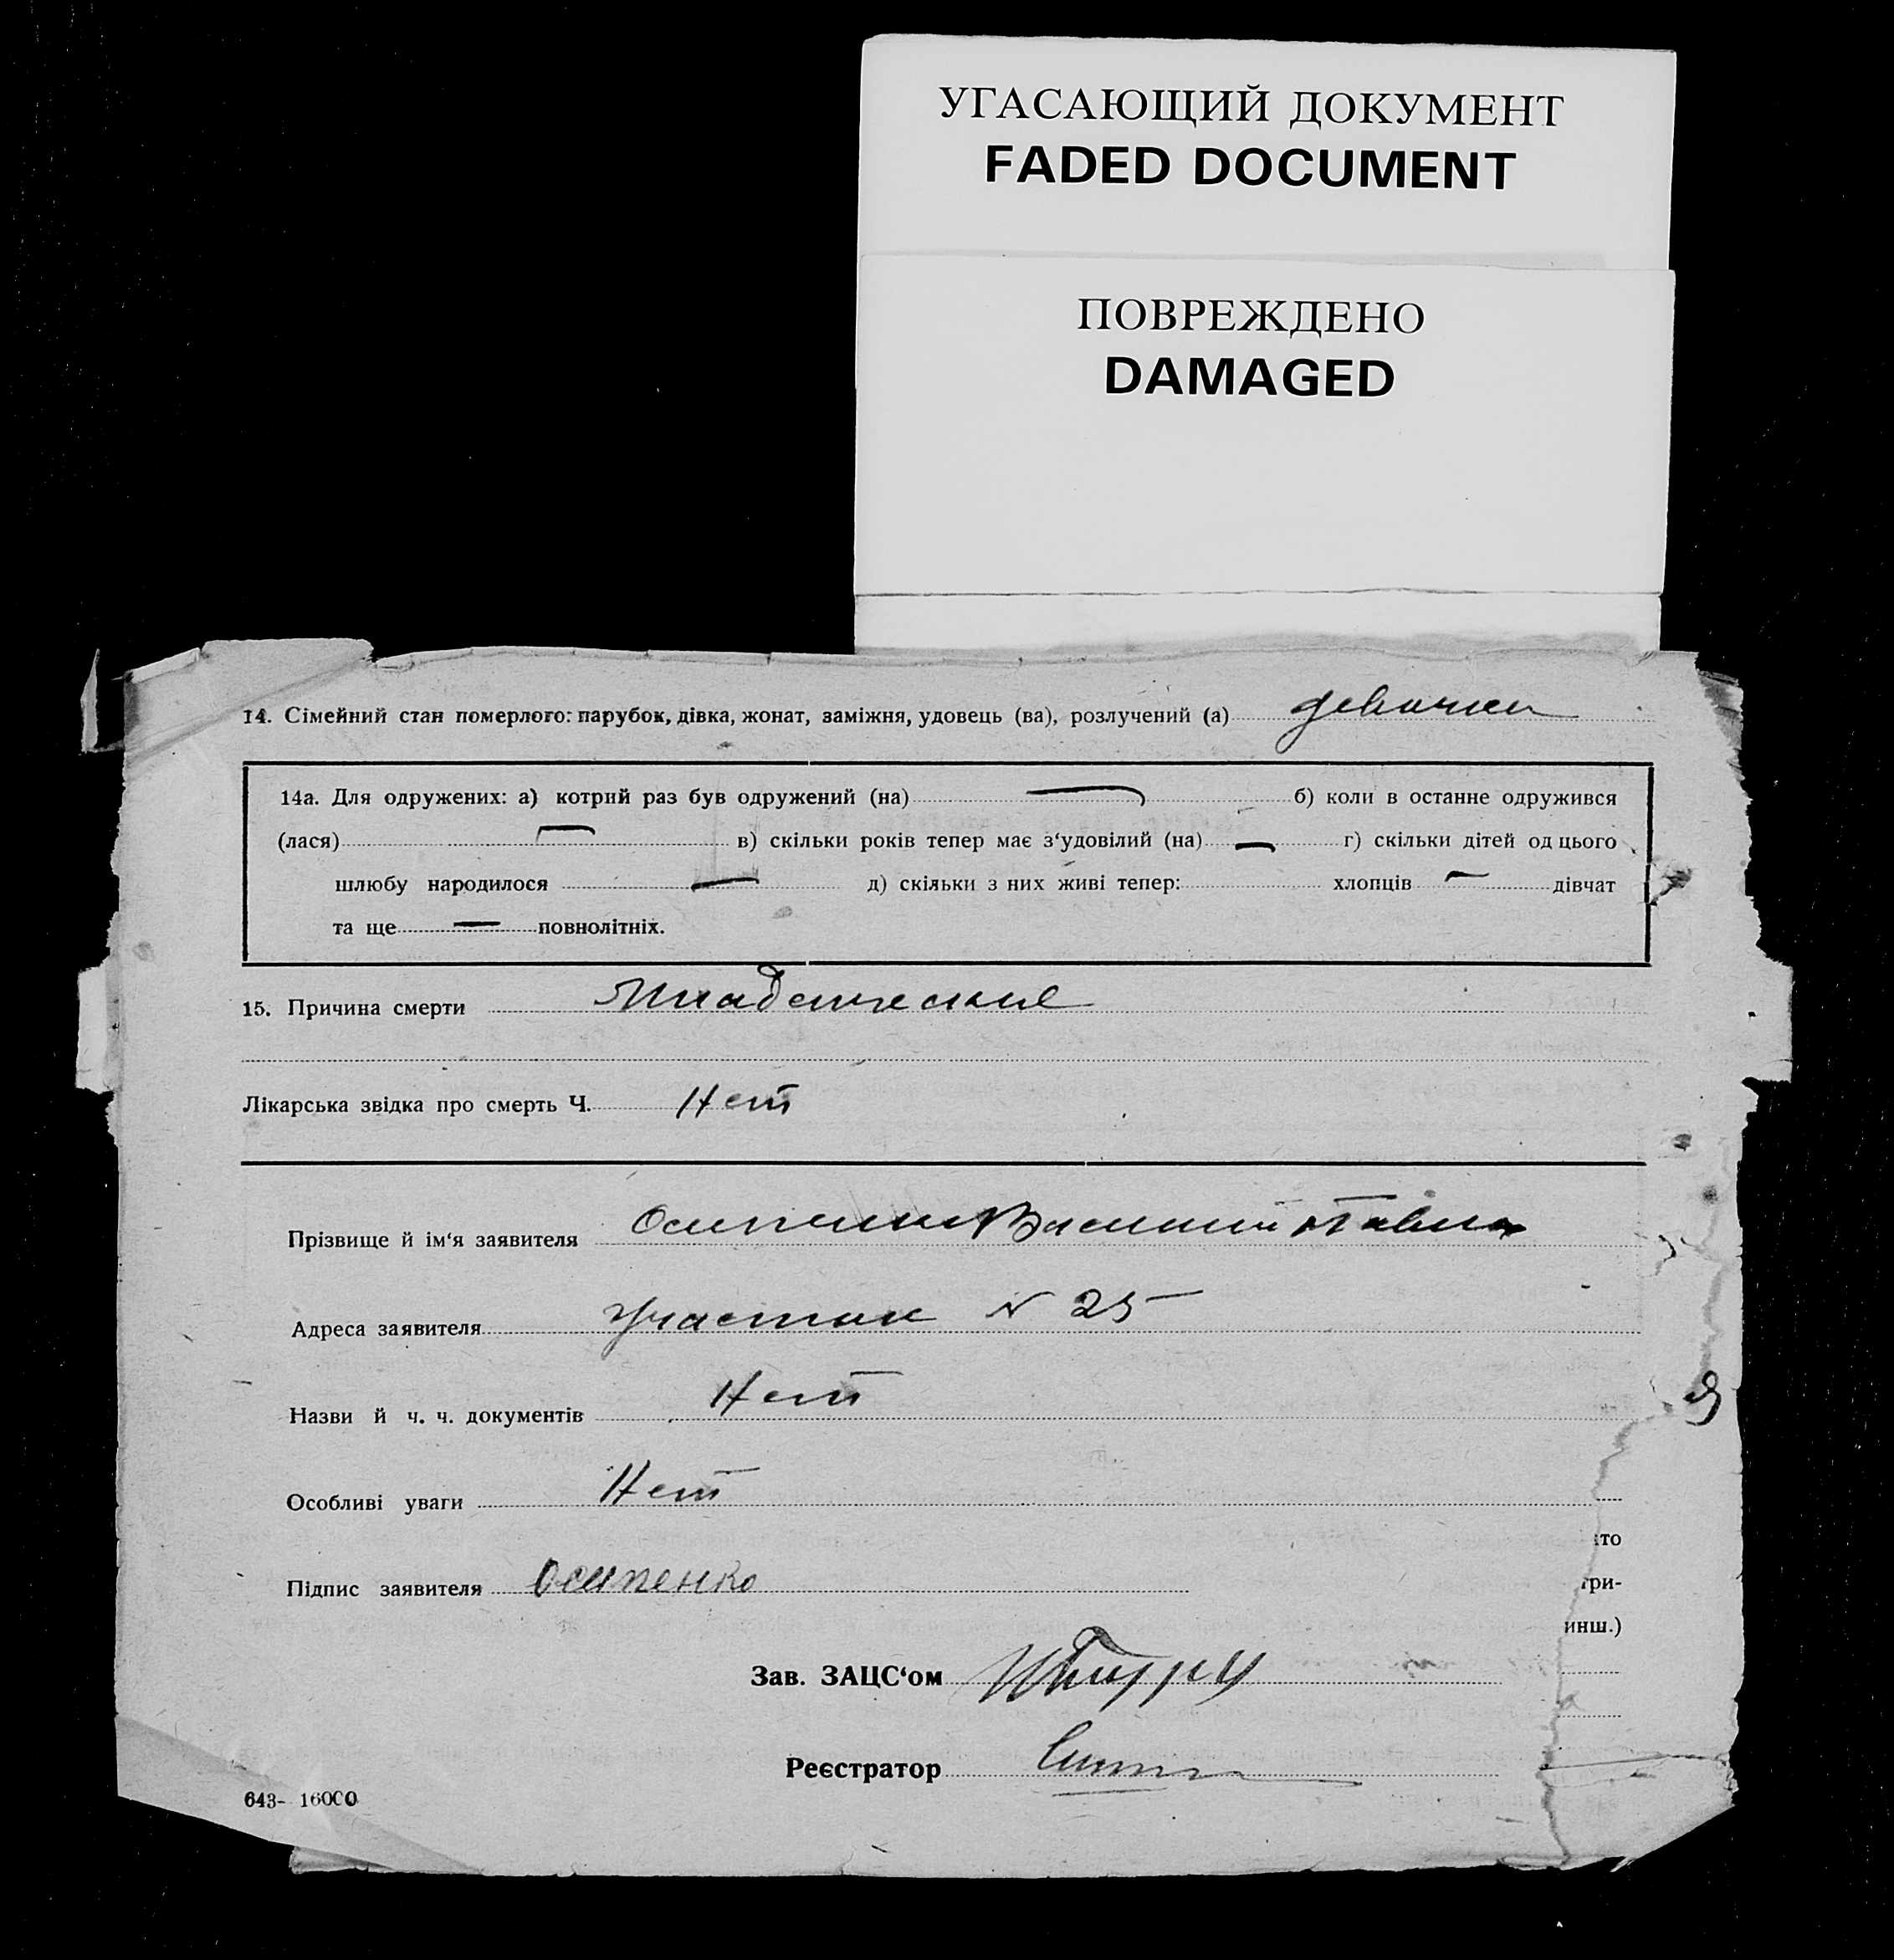 УГАСАЮЩИЙ ДОКУМЕНТ
FADED DOCUMENT
ПОВРЕЖДЕНО
DAMAGED
14. Сімейний стан померлого: парубок, дівка, жонат, заміжня, удовець (ва), розлучений (а) девочка
14а. Для одружених: а) котрий раз був одружений (на) — б) коли в останне одружився
(лася) — в) скільки років тепер має з‘удовілий (на) — г) скільки дітей од цього
шлюбу народилося — д) скільки з них живі тепер: хлопців — дівчат
та ще — повнолітніх.
15. Причина смерти Младенческие
Лікарська звідка про смерть Ч. Нет
Прізвище й ім‘я заявителя Осипенко Василий
Адреса заявителя Участок N 25
Назви й ч. ч. документів Нет
Особливі уваги Нет
то
три-
Підпис заявителя Осипенко
инш.)
Зав. ЗАЦС‘ом
Реєстратор
643- 16000